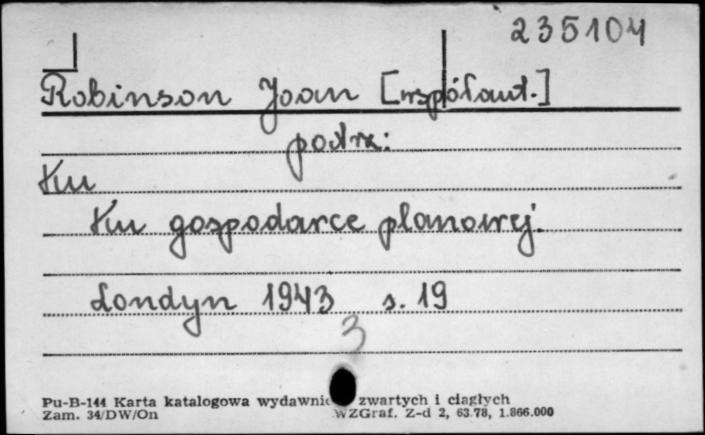 235104
Robinson Joan [współaut.]
patrz:
Ku
Ku gospodarce planowej.
Londyn 1943 s. 19
3
Pu-B-144 Karta katalogowa wydawnic zwartych i ciągłych
Zam. 34/DW/On WZGraf. Z-d 2, 63.78, 1.866.000